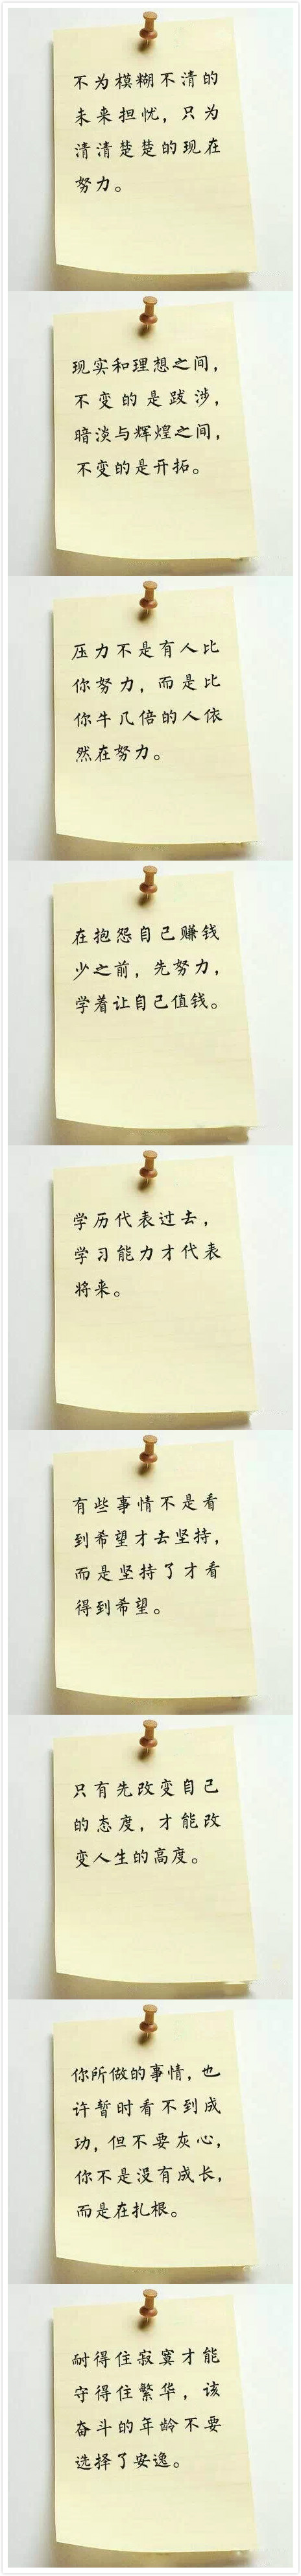 不为模糊不清的
未来担忧，只为
清清楚楚的现在
努力。
现实和理想之间，
不变的是跋涉，
暗淡与辉煌之间，
不变的是开拓。
压力不是有人比
你努力，而是比
你牛几倍的人依
然在努力。
在抱怨自己赚钱
少之前，先努力，
学着让自己值钱。
学历代表过去，
学习能力才代表
将来。
有些事情不是看
到希望才去坚持，
而是坚持了才看
得到希望。
只有先改变自己
的态度，才能改
变人生的高度。
你所做的事情，也
许暂时看不到成
功，但不要灰心，
你不是没有成长，
而是在扎根。
耐得住寂寞才能
守得住繁华，该
奋斗的年龄不要
选择了安逸。